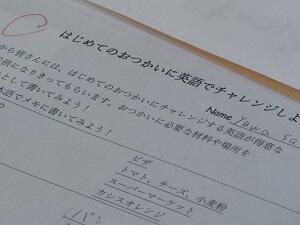 はじめてのおつかいに英語でチャレンジしよ
Name
から皆さんには、はじめてのおつかいにチャレンジする英語が得意な
供になりきってもらいます。おつかいに必要な材料や場所を
として書いてみよう！
本語でメモに書いてみよう！
ピザ
トマト、チーズ、小麦粉
スーパーマーケット
カシスオレンジ